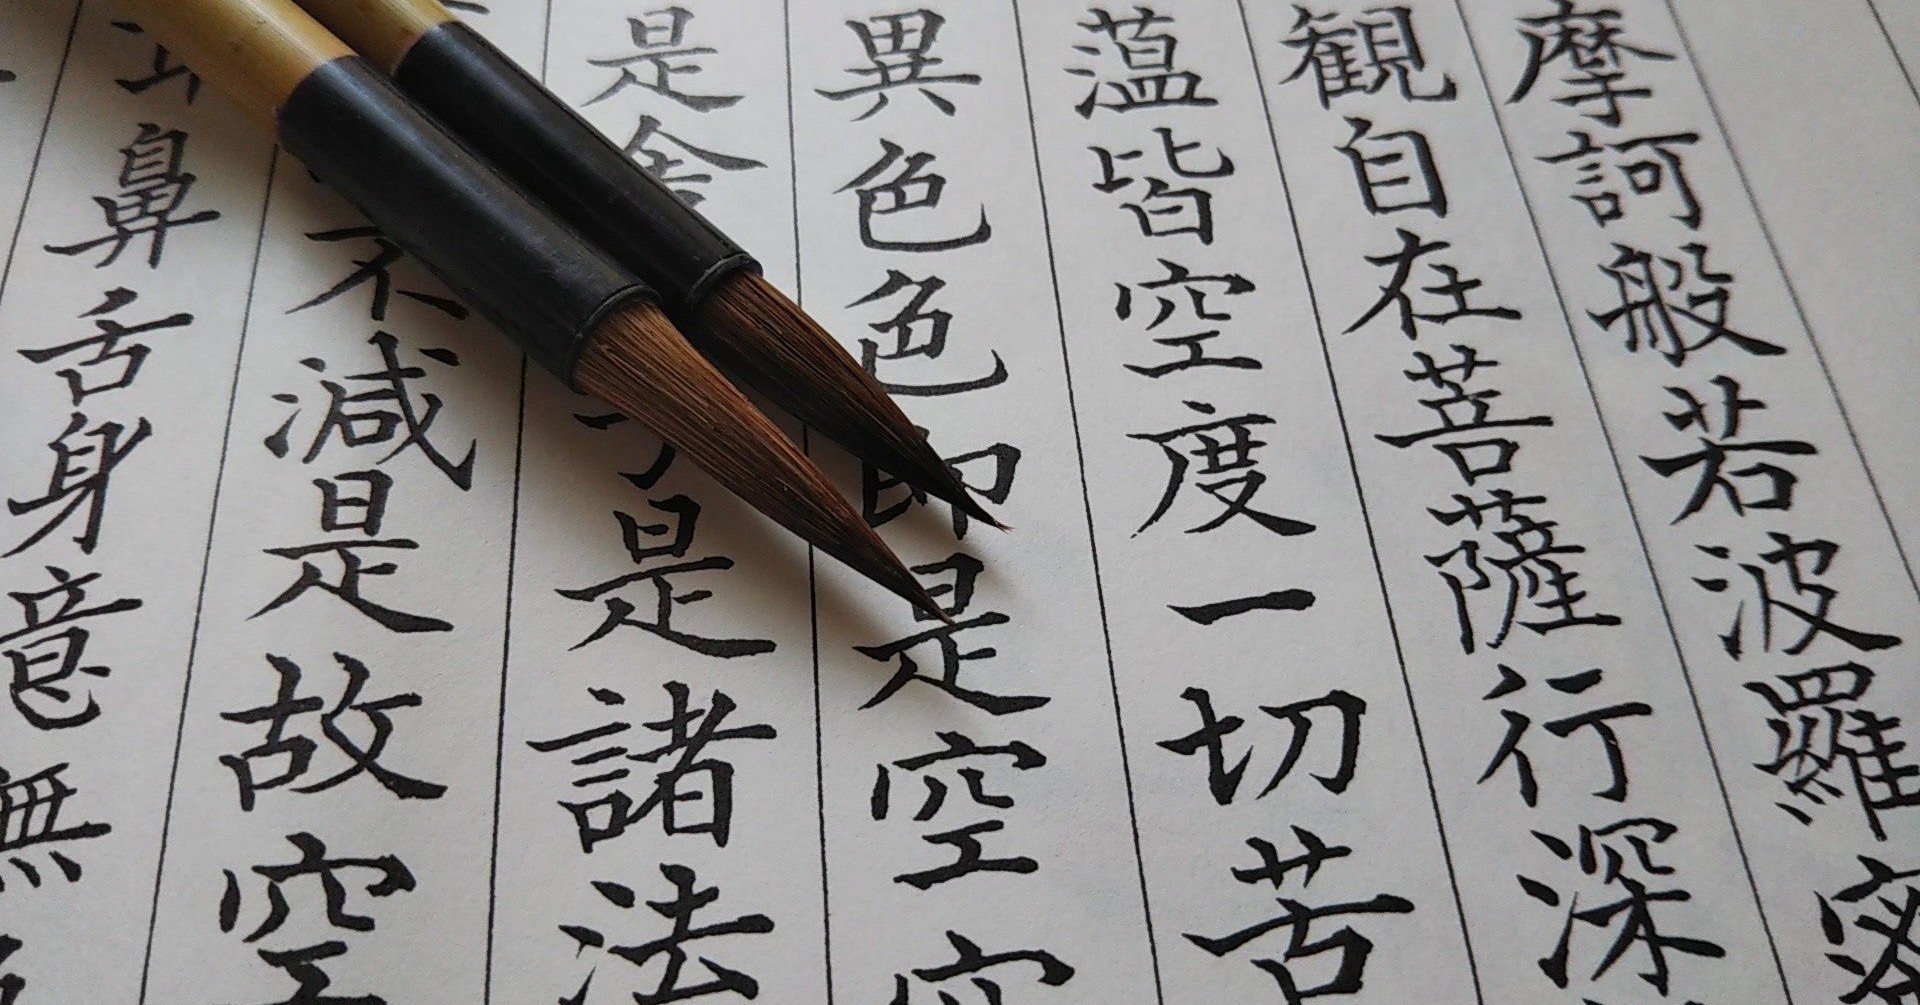 摩訶般若波羅蜜
観自在菩薩行深
薀皆空度一切苦
異色色即是空空
是舎是諸法
不減是故空
鼻舌身意無